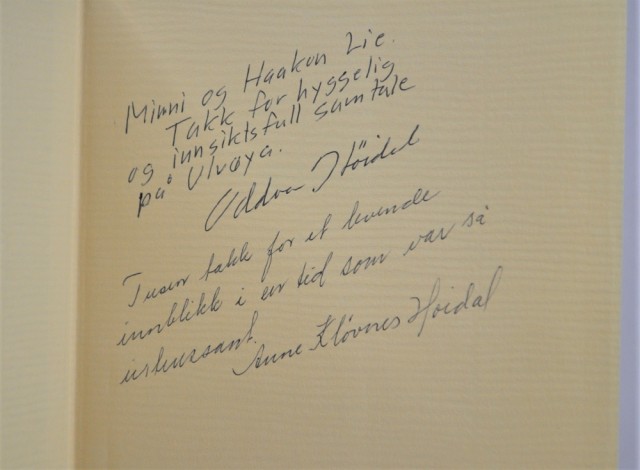 Minni og Haakon Lie.
Takk for hyggelig
og innsiktsfull samtale
på Ulvøya.
Oddvar Höidal
Tusen takk for et levende
innblikk i en tid som var så
interessant.
Anne Kløvnes Höidal